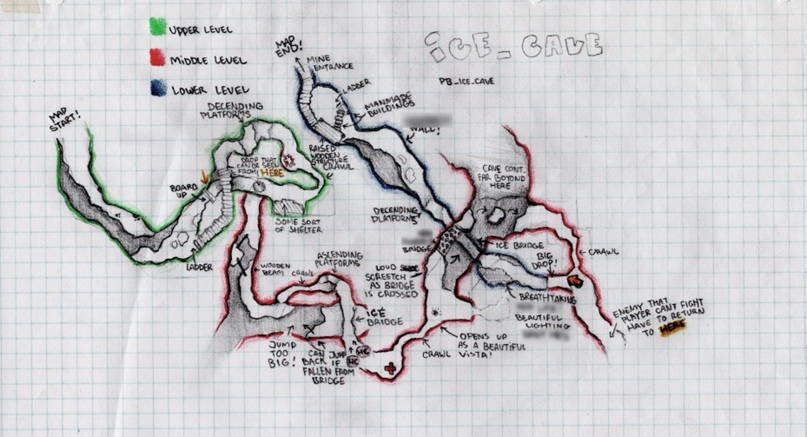 UPPER LEVEL
MIDDLE LEVEL
LOWER LEVEL
ICE_CAVE
PB_ICE_CAVE
MAP
START!
MAP
END!
MINE
ENTRANCE
LADDER
MANMADE
BUILDINGS
WALL!
DECENDING
PLATFORMS
DROP THAT
CAN BE SEEN
FROM HERE
BOARD
UP
LADDER
SOME SORT
OF SHELTER
RAISED
WOODEN
STRUCTURE
CRAWL
CAVE CONT.
FAR BEYOND
HERE
DECENDING
PLATFORMS
BRIDGE
ICE BRIDGE
BIG
DROP!
CRAWL
WOODEN
BEAM
CRAWL
ASCENDING
PLATFORMS
LOUD
SCREETCH
AS BRIDGE
IS CROSSED
BREATHTAKING
BEAUTIFUL
LIGHTING
ICE
BRIDGE
JUMP
TOO
BIG!
CAN JUMP
BACK IF
FALLEN FROM
BRIDGE
CRAWL
OPENS UP
AS A BEAUTIFUL
VISTA!
ENEMY THAT
PLAYER CANT FIGHT
HAVE TO RETURN
TO HERE